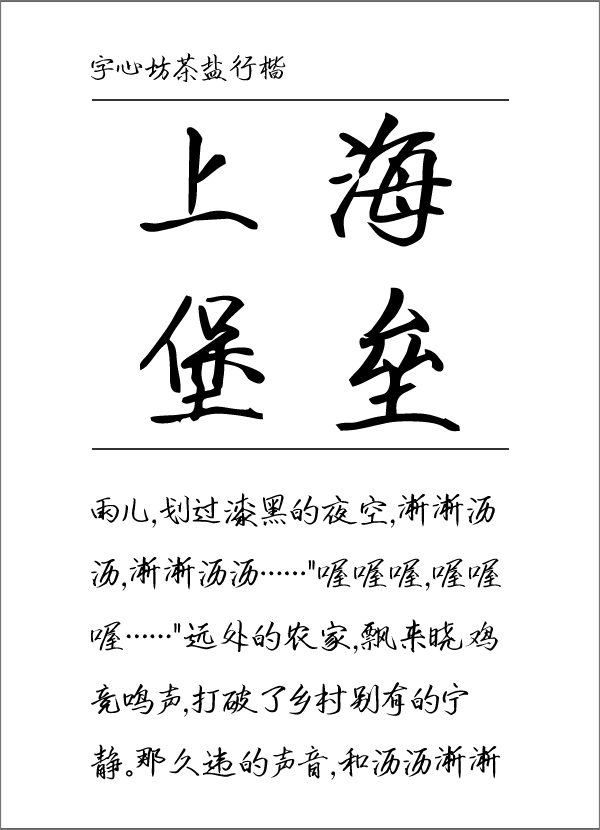 字心坊茶盐行楷
上海
堡垒
雨儿,划过漆黑的夜空,淅淅沥
沥,淅淅沥沥……"喔喔喔,喔喔
喔……"远处的农家,飘来晓鸡
竞鸣声,打破了乡村别有的宁
静。那久违的声音,和沥沥淅淅